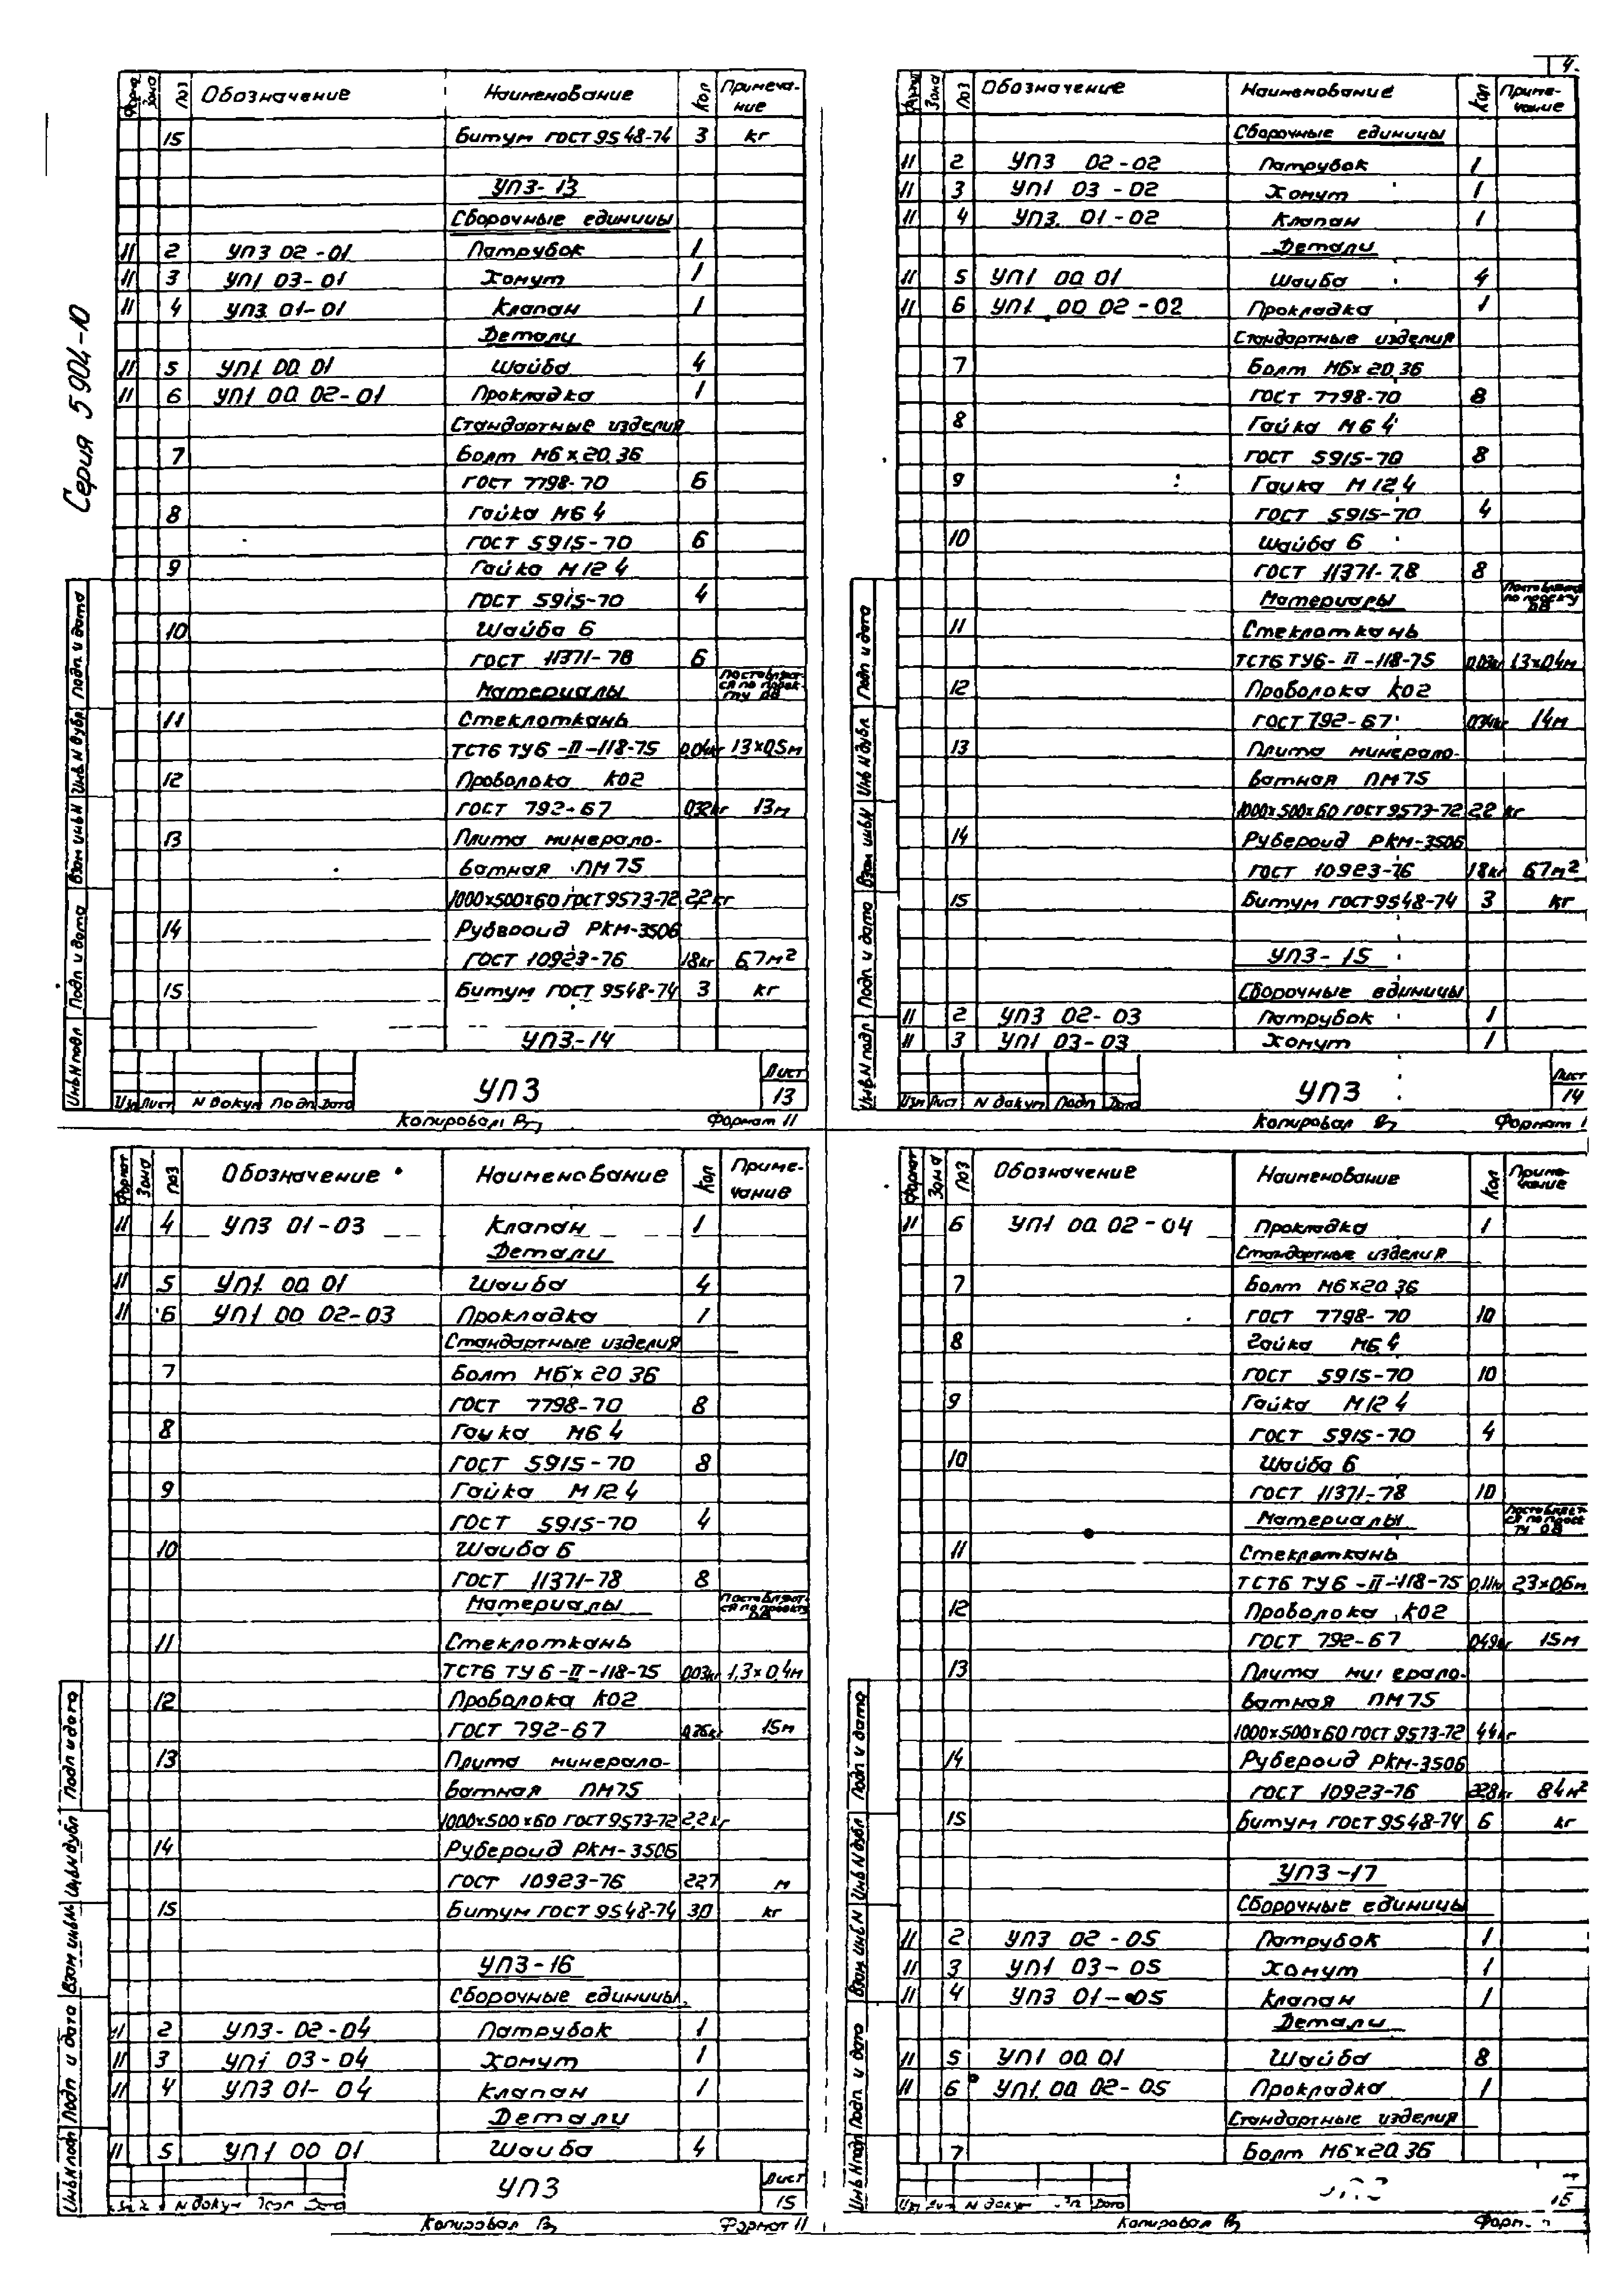 Серия 5904-10
Формат Зона Поз Обозначение Наименование Кол Примеча-
ние
15 Битум ГОСТ 9548-74 3 кг
УП3-13
Сборочные единицы
11 2 УП3 02-01 Патрубок 1
11 3 УП1 03-01 Хомут 1
11 4 УП3 01-01 Клапан 1
Детали
11 5 УП1 00 01 Шайба 4
11 6 УП1 00 02-01 Прокладка 1
Стандартные изделия
7 Болт М6х20 36
ГОСТ 7798-70 6
8 Гайка М6 4
ГОСТ 5915-70 6
9 Гайка М12 4
ГОСТ 5915-70 4
10 Шайба 6
ГОСТ 11371-78 6
Материалы Поставляет-
ся по проек-
ту ОВ
11 Стеклоткань
ТСТ6 ТУ6-II-118-75 0,04кг 13х0,5м
12 Проволока КО2
ГОСТ 792-67 032кг 13м
13 Плита минерало-
ватная ПМ75
1000х500х60 ГОСТ 9573-72 2,2кг
14 Рубероид РКМ-350б
ГОСТ 10923-76 18кг 6,7м²
15 Битум ГОСТ 9548-74 3 кг
УП3-14
УП3
Лист
13
Изм Лист N докум Подп Дата
Копировал
Формат 11
Инв N подл Подп и дата Взам инв N Инв N дубл Подп и дата
4.
Формат Зона Поз Обозначение Наименование Кол Приме-
чание
Сборочные единицы
11 2 УП3 02-02 Патрубок 1
11 3 УП1 03-02 Хомут 1
11 4 УП3 01-02 Клапан 1
Детали
11 5 УП1 00 01 Шайба 4
11 6 УП1 00 02-02 Прокладка 1
Стандартные изделия
7 Болт М6х20 36
ГОСТ 7798-70 8
8 Гайка М6 4
ГОСТ 5915-70 8
9 Гайка М12 4
ГОСТ 5915-70 4
10 Шайба 6
ГОСТ 11371-78 8
Материалы Поставляется
по проекту
ОВ
11 Стеклоткань
ТСТ6 ТУ6-II-118-75 0,03кг 13х0,4м
12 Проволока КО2
ГОСТ 792-67 034кг 14м
13 Плита минерало-
ватная ПМ75
1000х500х60 ГОСТ 9573-72 2,2 кг
14 Рубероид РКМ-350б
ГОСТ 10923-76 18кг 6,7м²
15 Битум ГОСТ 9548-74 3 кг
УП3-15
Сборочные единицы
11 2 УП3 02-03 Патрубок 1
11 3 УП1 03-03 Хомут 1
УП3
Лист
14
Изм Лист N докум Подп Дата
Копировал
Формат 1
Инв N подл Подп и дата Взам инв N Инв N дубл Подп и дата
Формат Зона Поз Обозначение Наименование Кол Приме-
чание
11 4 УП3 01-03 Клапан 1
Детали
11 5 УП1 00 01 Шайба 4
11 6 УП1 00 02-03 Прокладка 1
Стандартные изделия
7 Болт М6х20 36
ГОСТ 7798-70 8
8 Гайка М6 4
ГОСТ 5915-70 8
9 Гайка М12 4
ГОСТ 5915-70 4
10 Шайба 6
ГОСТ 11371-78 8
Материалы Поставляет-
ся по проекту
ОВ
11 Стеклоткань
ТСТ6 ТУ6-II-118-75 003кг 1,3х0,4м
12 Проволока КО2
ГОСТ 792-67 15м
13 Плита минерало-
ватная ПМ75
1000х500х60 ГОСТ 9573-72 2,2кг
14 Рубероид РКМ-350б
ГОСТ 10923-76 227 м
15 Битум ГОСТ 9548-74 3,0 кг
УП3-16
Сборочные единицы
11 2 УП3-02-04 Патрубок 1
11 3 УП1 03-04 Хомут 1
11 4 УП3 01-04 Клапан 1
Детали
11 5 УП1 00 01 Шайба 4
УП3
Лист
15
N докум Дата
Копировал
Формат 11
Инв N подл Подп и дата Взам инв N Инв N дубл Подп и дата
Формат Зона Поз Обозначение Наименование Кол Приме-
чание
11 6 УП1 00 02-04 Прокладка 1
Стандартные изделия
7 Болт М6х20 36
ГОСТ 7798-70 10
8 Гайка М6 4
ГОСТ 5915-70 10
9 Гайка М12 4
ГОСТ 5915-70 4
10 Шайба 6
ГОСТ 11371-78 10
Материалы Поставляет-
ся по проек
ту ОВ
11 Стеклоткань
ТСТ6 ТУ6-II-118-75 0,11кг 2,3х0,6м
12 Проволока КО2
ГОСТ 792-67 049кг 15м
13 Плита минерало-
ватная ПМ75
1000х500х60 ГОСТ 9573-72 44кг
14 Рубероид РКМ-350б
ГОСТ 10923-76 228кг 84м²
15 Битум ГОСТ 9548-74 6 кг
УП3-17
Сборочные единицы
11 2 УП3 02-05 Патрубок 1
11 3 УП1 03-05 Хомут 1
11 4 УП3 01-05 Клапан 1
Детали
11 5 УП1 00 01 Шайба 8
11 6 УП1 00 02-05 Прокладка 1
Стандартные изделия
7 Болт М6х20 36
Изм N докум Дата
Копировал
Инв N подл Подп и дата Взам инв N Инв N дубл Подп и дата